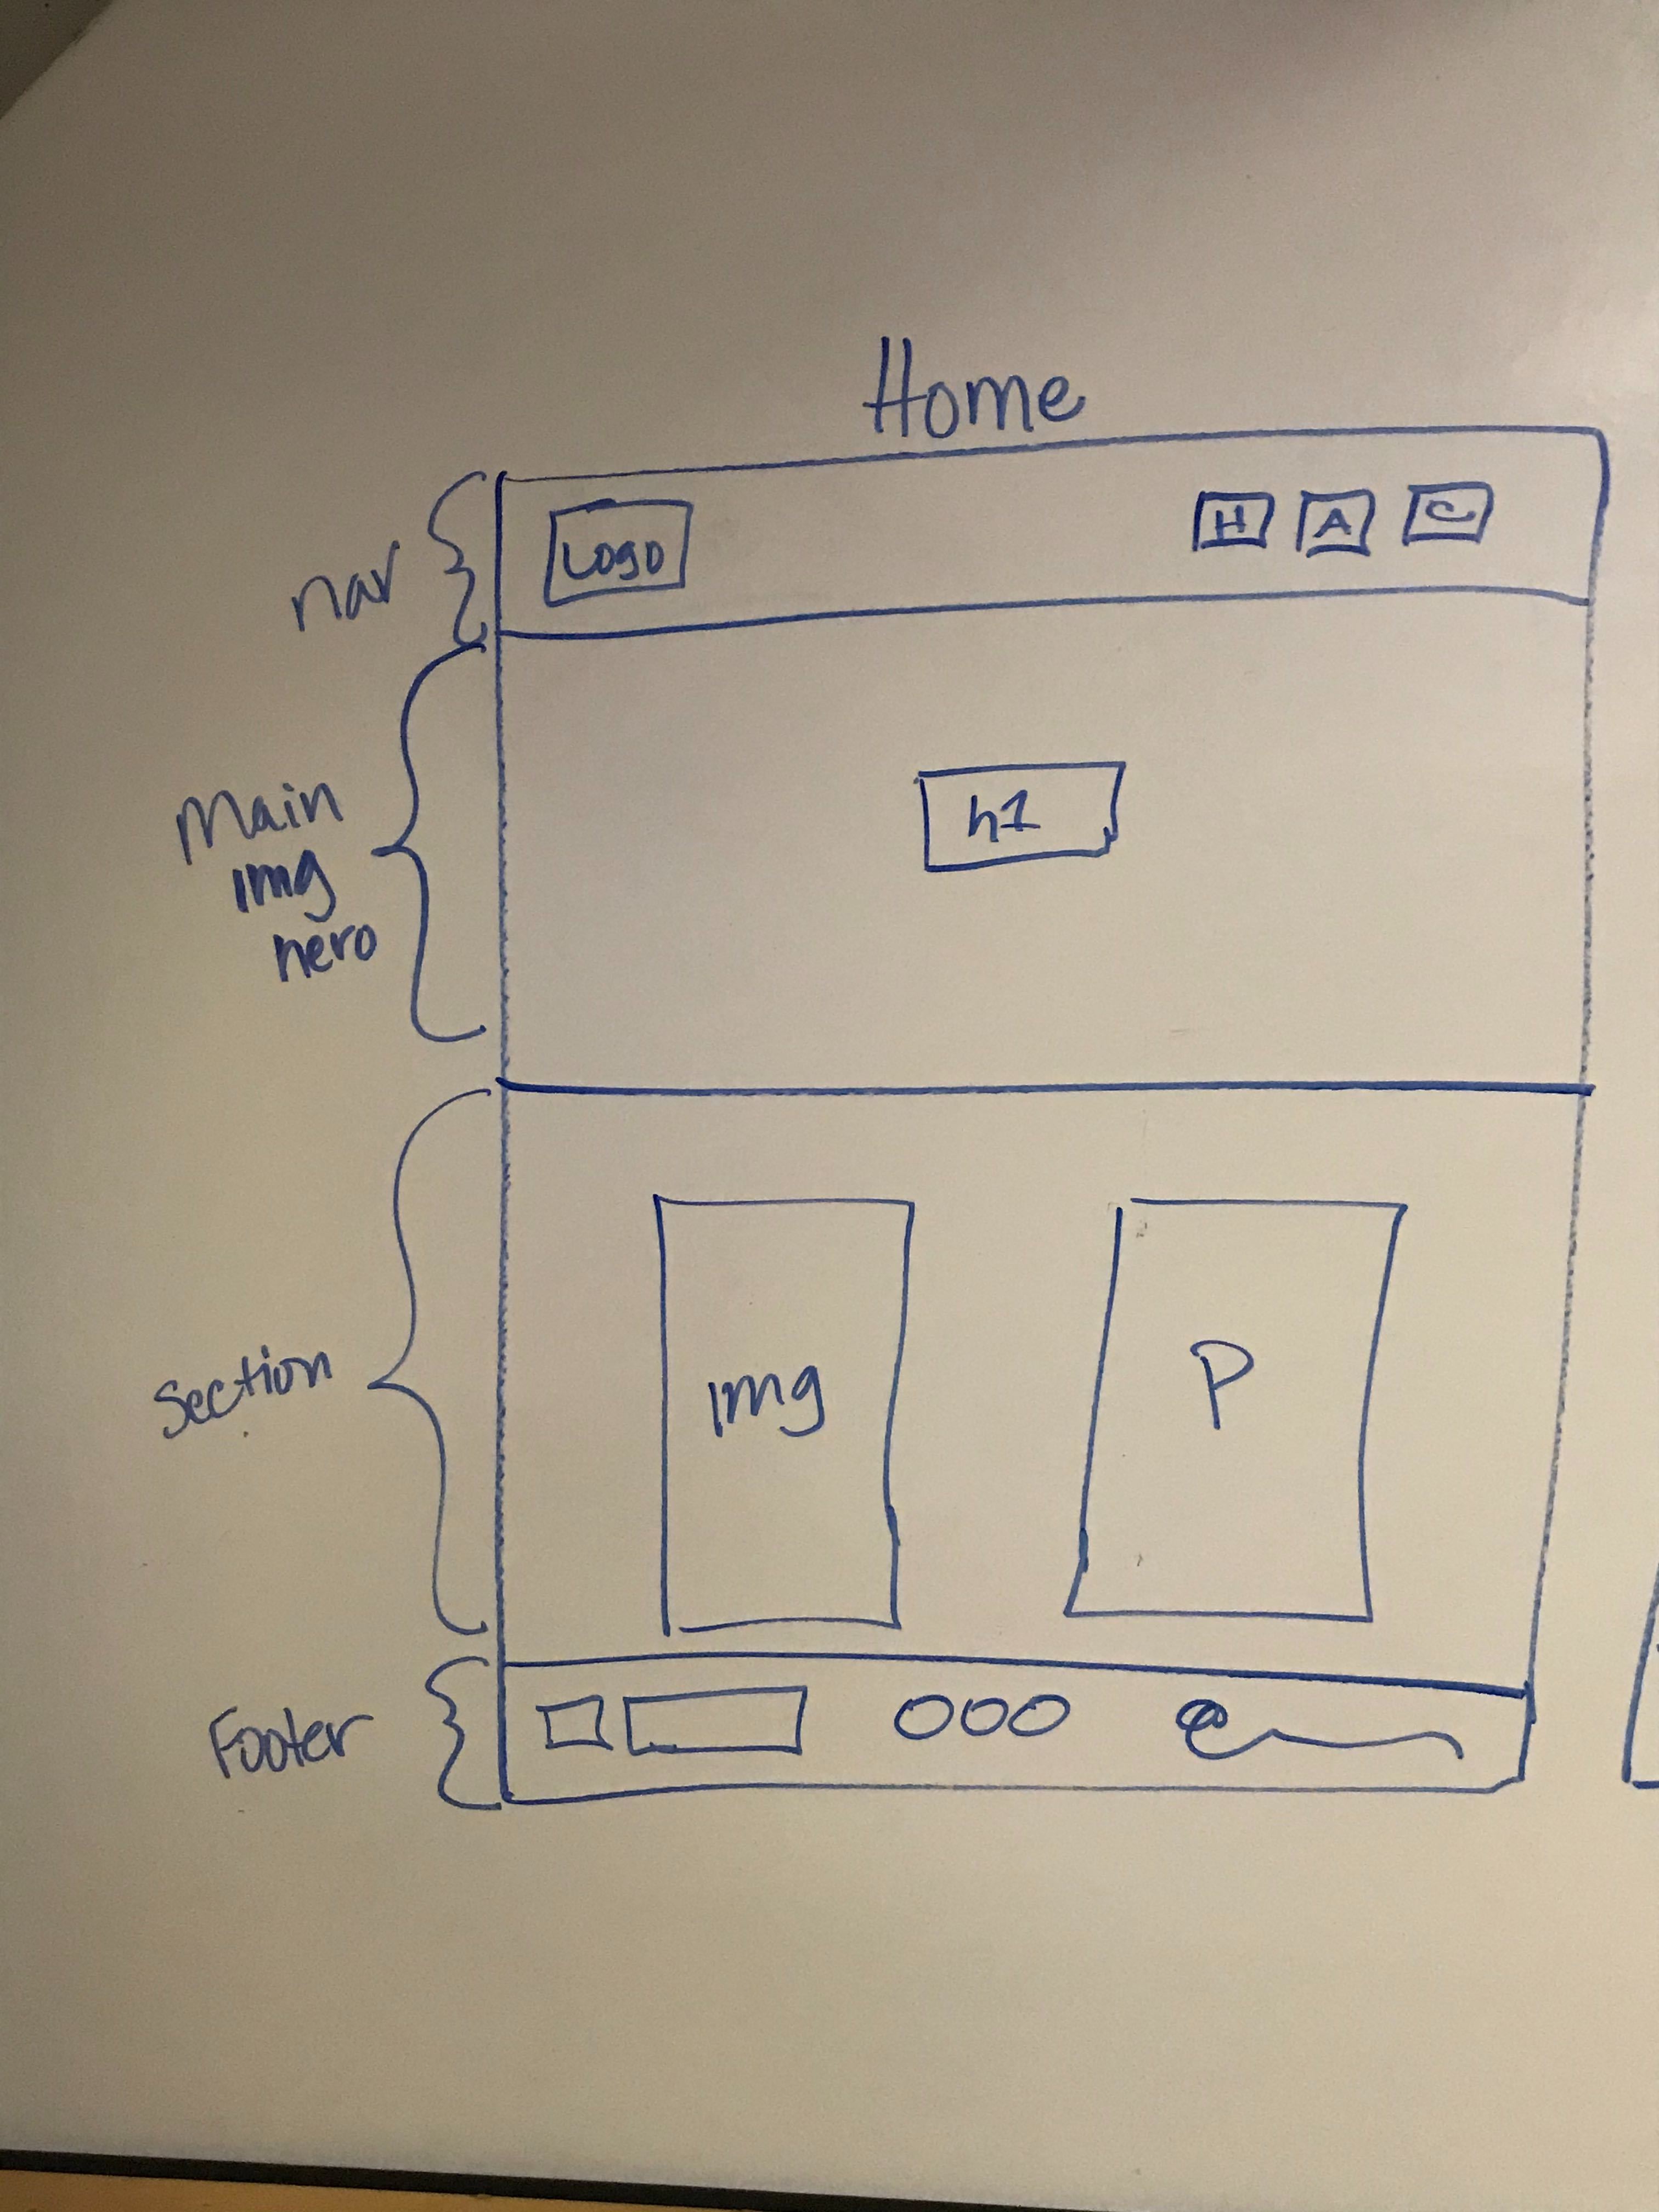 Home
nav
Logo
H A C
Main
img
hero
h1
Section
img
P
Footer